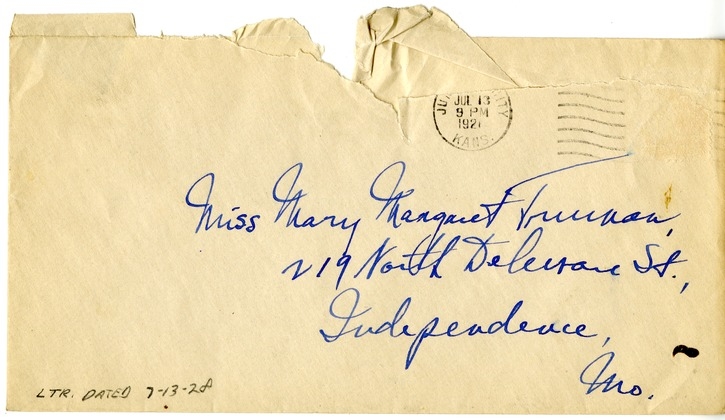 JUNCTION CITY
JUL 13
9 PM
192
KANS.
Miss Mary Margaret Truman,
219 North Delaware St.,
Independence,
Mo.
LTR. DATED 7-13-28